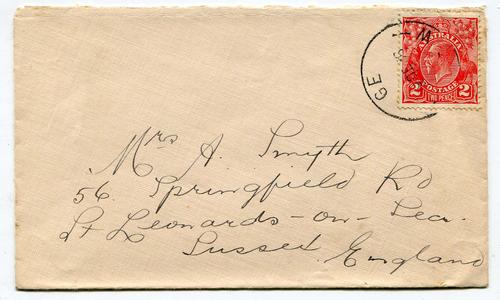 AUSTRALIA
POSTAGE
2 TWO PENCE 2
GE
Mrs A. Smyth
56 Springfield Rd
St Leonards-on-Sea.
Sussex, England